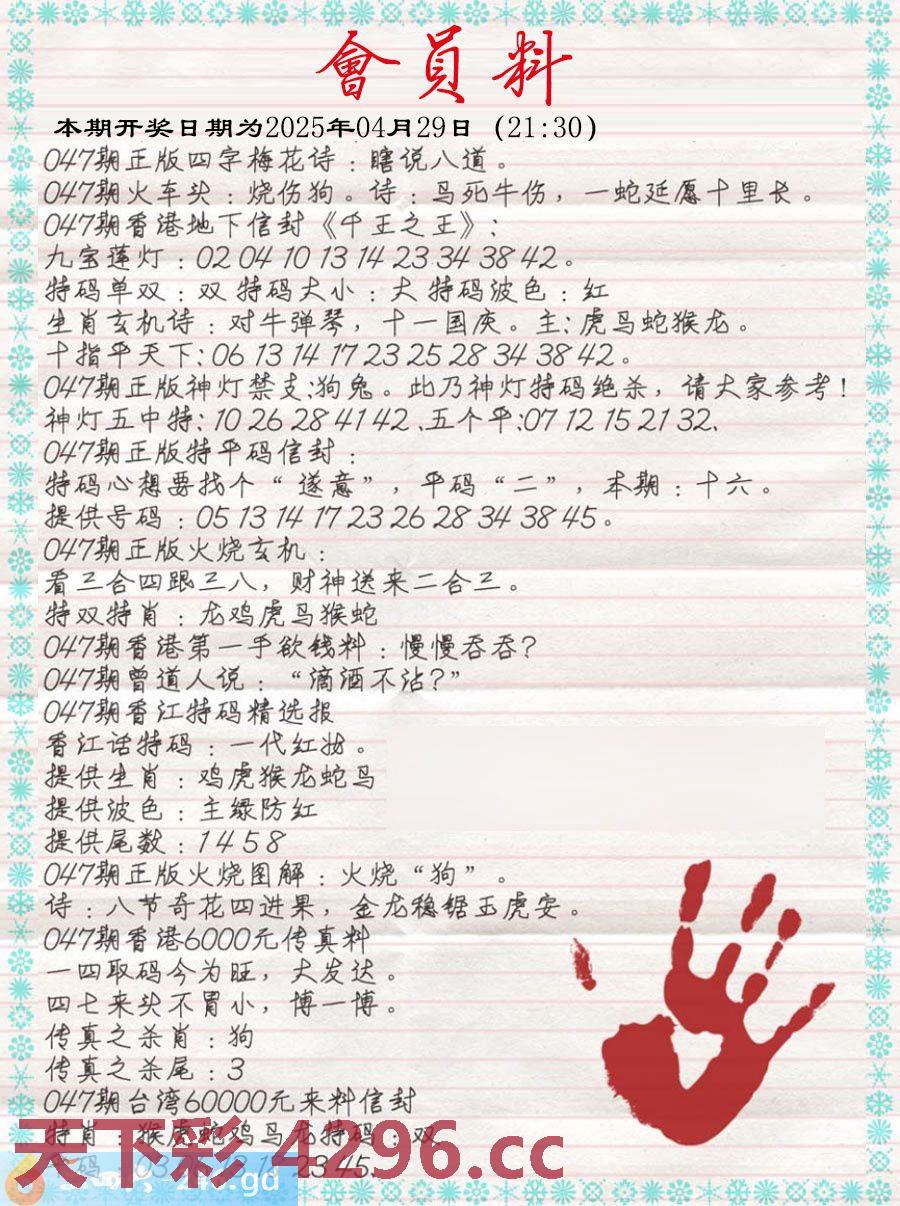 會員料
本期开奖日期为2025年04月29日（21:30）
047期正版四字梅花诗：瞎说八道。
047期火车头：烧伤狗。诗：鸟死牛伤，一蛇延愿十里长。
047期香港地下信封《千王之王》：
九宝莲灯：02 04 10 13 14 23 34 38 42。
特码单双：双 特码大小：大 特码波色：红
生肖玄机诗：对牛弹琴，十一国庆。主：虎马蛇猴龙。
十指平天下：06 13 14 17 23 25 28 34 38 42。
047期正版神灯禁支：狗兔。此乃神灯特码绝杀，请大家参考！
神灯五中特：10 26 28 41 42、五个平：07 12 15 21 32、
047期正版特平码信封：
特码心想要找个“遂意”，平码“二”，本期：十六。
提供号码：05 13 14 17 23 26 28 34 38 45。
047期正版火烧玄机：
看三合四跟三八，财神送来二合三。
特双特肖：龙鸡虎马猴蛇
047期香港第一手欲钱料：慢慢吞吞？
047期曾道人说：“滴酒不沾？”
047期香江特码精选报
香江话特码：一代红妆。
提供生肖：鸡虎猴龙蛇马
提供波色：主绿防红
提供尾数：1 4 5 8
047期正版火烧图解：火烧“狗”。
诗：八节奇花四进果，金龙稳锯玉虎安。
047期香港6000元传真料
一四取码今为旺，大发达。
四七来头不冒小，博一博。
传真之杀肖：狗
传真之杀尾：3
047期台湾60000元来料信封
特肖：猴虎蛇鸡马龙特码：双
天下彩4296.cc
23 45、